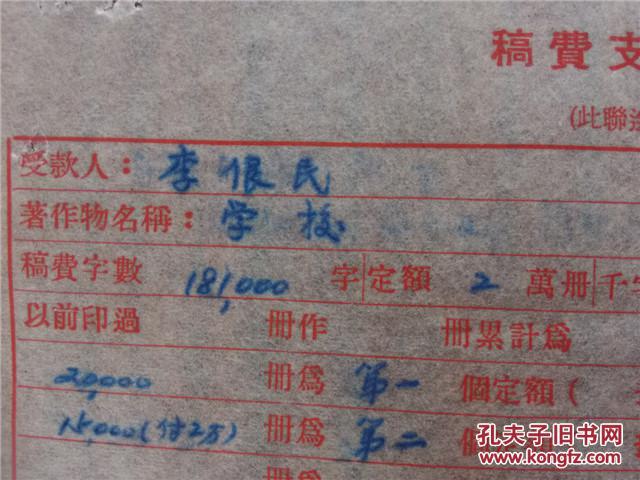 稿費支
(此聯
受款人：李俍民
著作物名稱：学校
稿費字數 181,000 字 定額 2 萬冊 千字
以前印過 冊作 冊累計爲
20,000 冊爲 第一 個定額(
15,000(付2万) 冊爲 第二 個
冊爲
孔夫子旧书网
www.kongfz.com